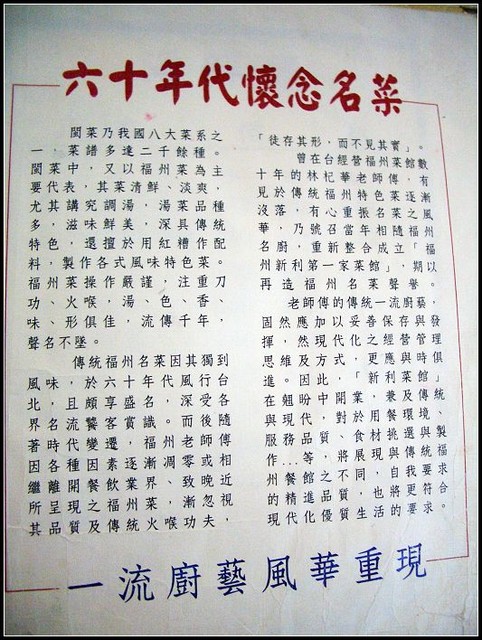 六十年代懷念名菜
閩菜乃我國八大菜系之
一，菜譜多達二千餘種。
閩菜中，又以福州菜為主
要代表，其菜清鮮、淡爽，
尤其講究調湯，湯菜品種
多，滋味鮮美，深具傳統
特色，還擅於用紅糟作配
料，製作各式風味特色菜。
福州菜操作嚴謹，注重刀
功、火喉，湯、色、香、
味、形俱佳，流傳千年，
聲名不墜。
傳統福州名菜因其獨到
風味，於六十年代風行台
北，且頗享盛名，深受各
界名流饕客賞識。而後隨
著時代變遷，福州老師傅
因各種因素逐漸凋零或相
繼離開餐飲業界、致晚近
所呈現之福州菜，漸忽視
其品質及傳統火喉功夫，
「徒存其形，而不見其實」。
曾在台經營福州菜館數
十年的林杞華老師傅，有
見於傳統福州特色菜逐漸
沒落，有心重振名菜之風
華，乃號召當年相隨福州
名廚，重新整合成立「福
州新利第一家菜館」，期以
再造福州名菜聲譽。
老師傅的傳統一流廚藝，
固然應加以妥善保存與發
揮，然現代化之經營管理
思維及方式，更應與時俱
進。因此，「新利菜館」
在翹盼中開業，兼及傳統
與現代，對於用餐環境、
服務品質、食材挑選與製
作...等，將展現與傳統福
州餐館之不同，自我要求
的精進品質，也將更符合
現代化優質生活的要求。
一流廚藝風華重現